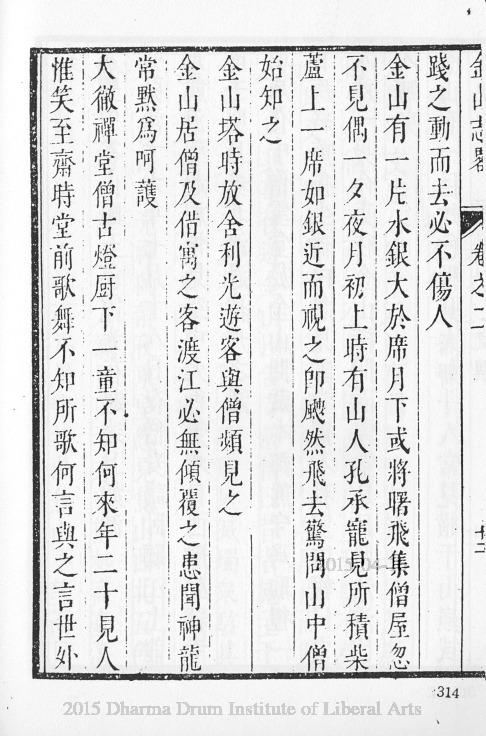 金山志畧 卷之二 廿二
踐之動而去必不傷人
金山有一片水銀大於席月下或將曙飛集僧屋忽
不見偶一夕夜月初上時有山人孔承寵見所積柴
蘆上一席如銀近而視之卽飕然飛去驚問山中僧
始知之
金山塔時放舍利光遊客與僧頻見之
金山居僧及借寓之客渡江必無傾覆之患聞神龍
常默爲呵護
大徹禪堂僧古燈厨下一童不知何來年二十見人
惟笑至齋時堂前歌舞不知所歌何言與之言世外
314
2015 Dharma Drum Institute of Liberal Arts